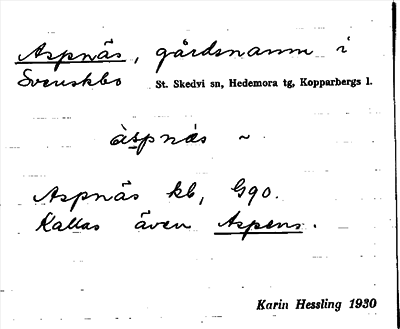 Aspnäs, gårdsnamn i
Svenskbo St. Skedvi sn, Hedemora tg, Kopparbergs l.
àspnä̀s ~
Aspnäs kb, G90.
Kallas även Aspens.
Karin Hessling 1930